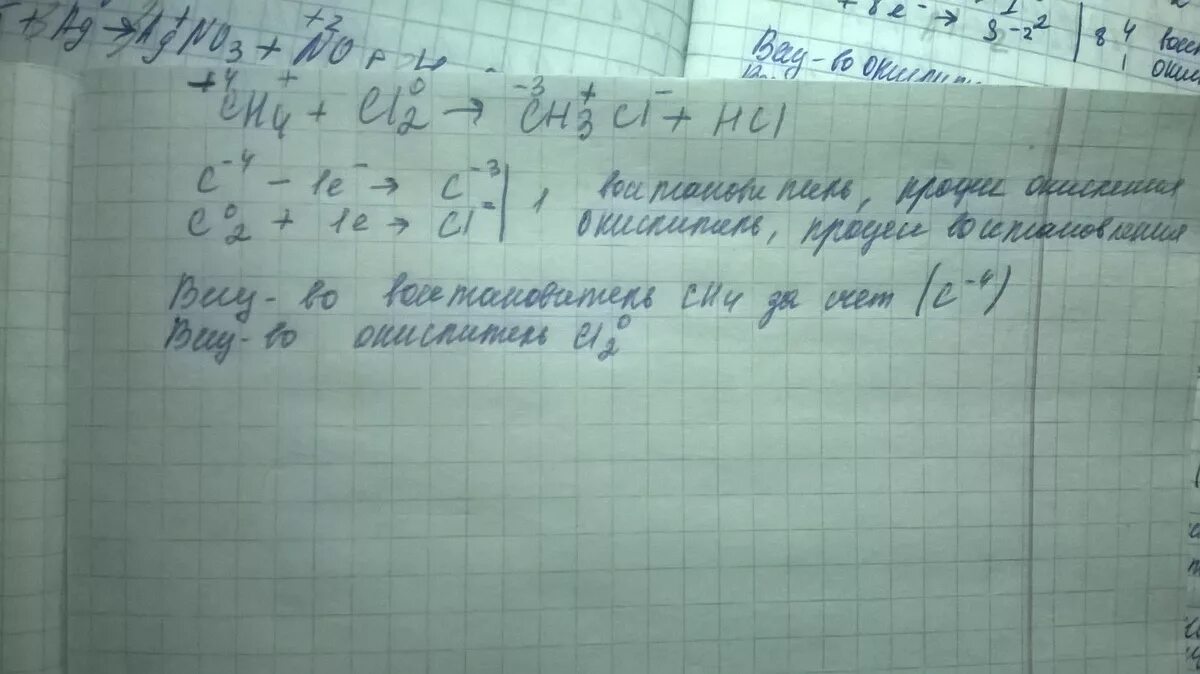 + Ag → Ag⁺NO₃ + N⁺²O +
+ 8e⁻ → S⁻² | 8 4
Вещ-во окислит
⁺⁴CH₄⁺ + Cl₂⁰ → ⁻³CH₃⁺Cl⁻ + HCl
C⁻⁴ - 1e⁻ → C⁻³ | 1 востановитель, процес окисления
C⁰₂ + 1e → Cl⁻ | окислитель, процес востановления
Вещ-во востановитель CH₄ за счет (C⁻⁴)
Вещ-во окислитель Cl₂⁰